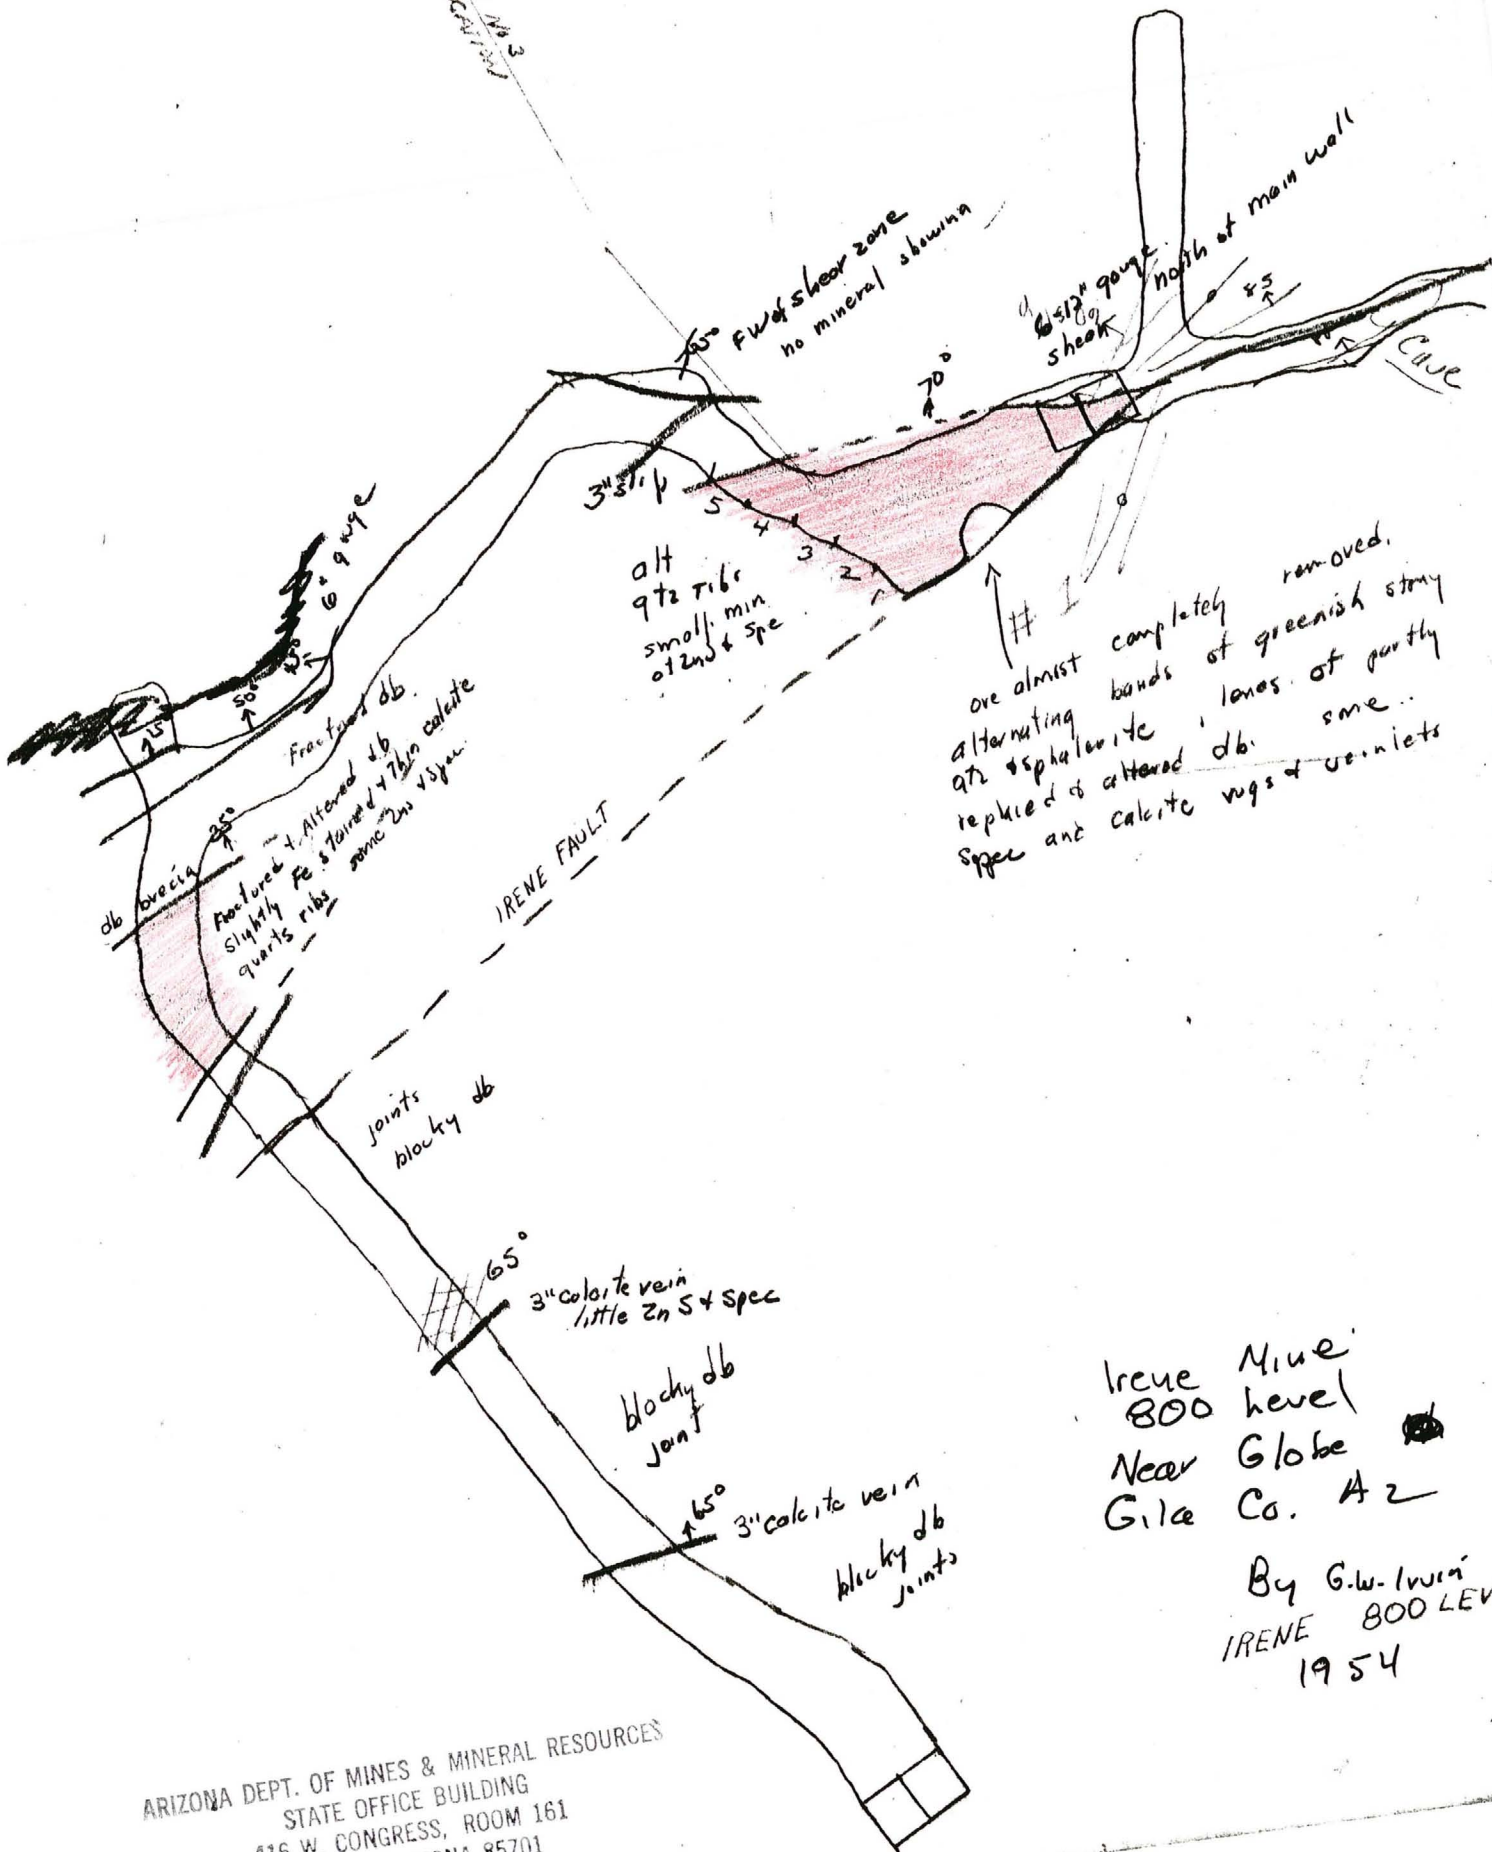 No 3
FW of shear zone
no mineral showing
6"-12" gouge
north of main wall
shear
85
70°
Cave
3" slip
5
4
3
2
alt
qtz ribs
small min
of zns & spe
# 1
ore almost completely removed.
alternating bands of greenish stony
qtz & sphalerite, lenes. of partly
replaced & altered db. some..
spec and calcite vugs & veinlets
6" gouge
45°
50°
Fractured db.
35°
db brecia
Fractured & Altered db
slightly Fe. stained & Thin calcite
quarts ribs some zns & spec.
IRENE FAULT
joints
blocky db
65°
3" calcite vein
little Zn S & Spec
blocky db
joint
65°
3" calcite vein
blocky db
joints
Irene Mine
800 Level
Near Globe
Gila Co. Az
By G.W. Irvin
IRENE 800 LEV
1954
ARIZONA DEPT. OF MINES & MINERAL RESOURCES
STATE OFFICE BUILDING
416 W. CONGRESS, ROOM 161
85701